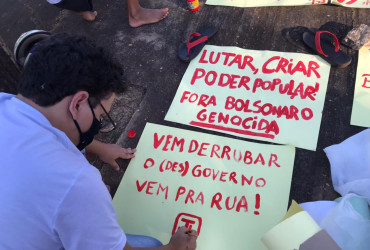 LUTAR, CRIAR
PODER POPULAR!
FORA BOLSONARO
GENOCIDA
VEM DERRUBAR
O (DES) GOVERNO
VEM PRA RUA!